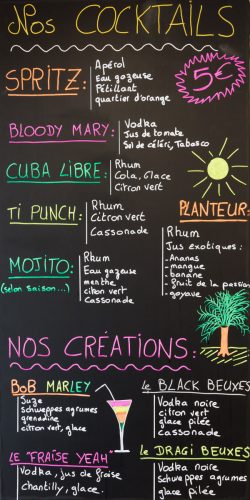 Nos COCKTAILS
5€
SPRITZ:
Apérol
Eau gazeuse
Pétillant
quartier d'orange
BLOODY MARY:
Vodka
Jus de tomate
Sel de céleri, Tabasco
CUBA LIBRE:
Rhum
Cola, Glace
Citron vert
TI PUNCH:
Rhum
Citron vert
Cassonade
PLANTEUR:
Rhum
Jus exotiques:
- Ananas
- mangue
- banane
- fruit de la passion
- goyave
MOJITO:
(selon saison...)
Rhum
Eau gazeuse
menthe
citron vert
Cassonade
NOS CRÉATIONS:
BOB MARLEY
Suze
Schweppes agrumes
grenadine
citron vert, glace
le BLACK BEUXES
Vodka noire
citron vert
glace pilée
cassonade
le "FRAISE YEAH"
Vodka, jus de fraise
chantilly, glace
le DRAGI BEUXES
Vodka noire
Schweppes agrumes
glace pilée